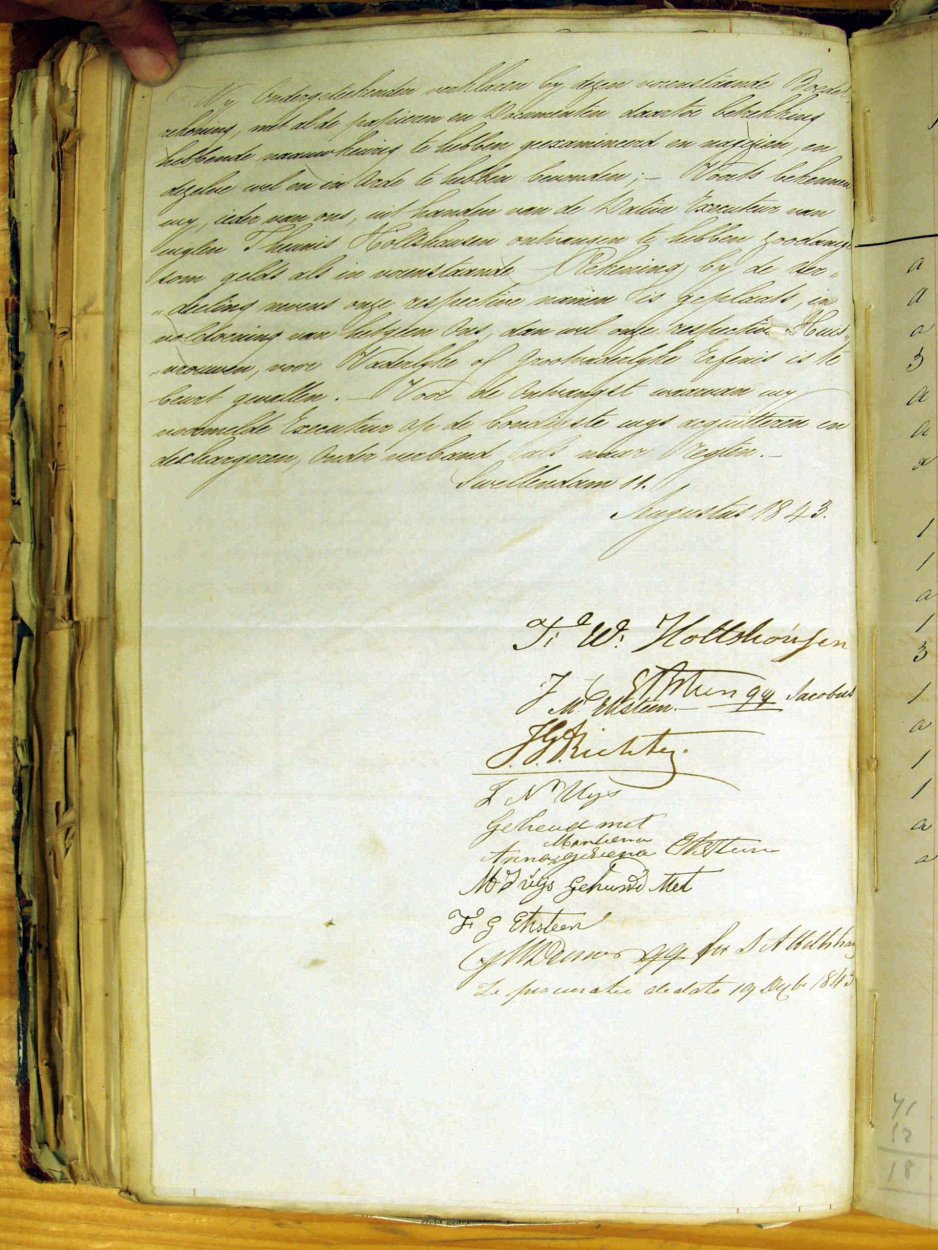 Wy Ondergeteekenden verklaren by dezen voorenstaande Boedel
rekening, met al de papieren en Documenten daartoe betrekking
hebbende naauwkeurig te hebben geexamineerd en nagezien, en
dezelve wel en in Orde te hebben bevonden; – Voorts bekennen
wy, ieder van ons, uit handen van de Datieve Executeur van
wylen Theunis Holtshausen ontvangen te hebben zoodanige
som gelds als in voorenstaande Rekening, by de Ver„
„deeling nevens onze respective namen is geplaatst, in
voldoening van hetgeen Ons, dan wel onze respective Huis„
„vrouwen, voor Vaderlyke of Grootvaderlyke Erfenis is te
beurt gevallen. – Voor de Ontvangst waarvan wy
voormelde Executeur op de bondigste wys acquitteren en
dechargeren, Onder verband als naar Regten. –
Swellendam 11.
Augustus 1843.
T. W. Holtshousen
Eksteen qq Jacobus
J M Eksteen
J. G. Richter.
N Uys
Gehuud met
Martiena
Anna Gesiena Eksteen
Uys Gehuwd Met
F G Eksteen
qq for S A Holtshau
Ze procuratie de dato 19 Decb 1843
a
a
a
3
a
a
a
1
1
a
1
3
1
a
1
1
a
a
71
52
18